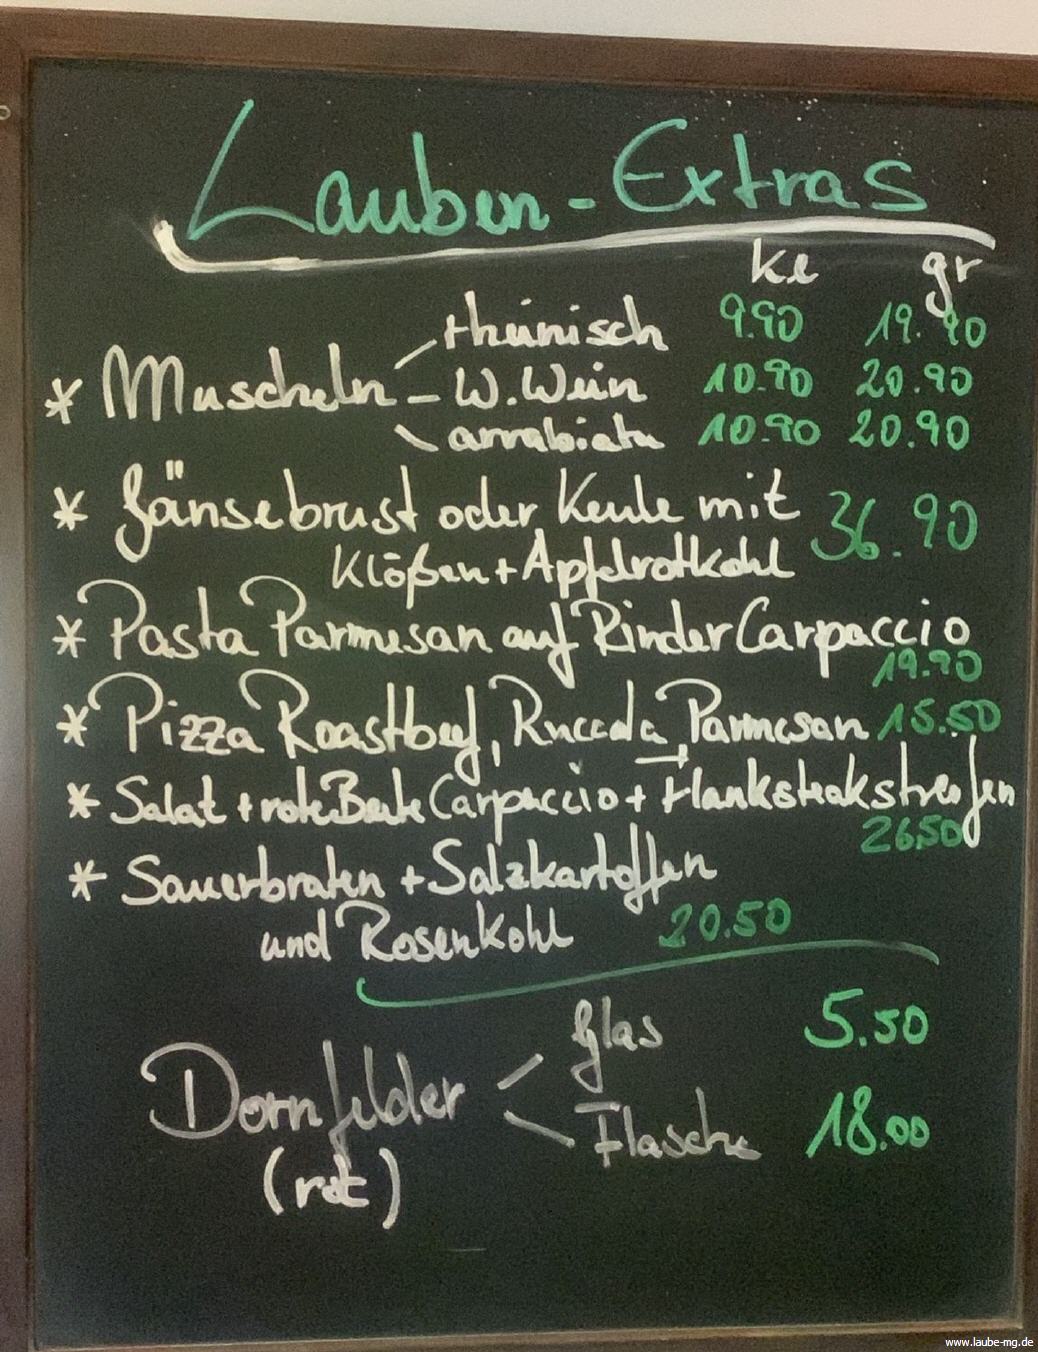 Lauben-Extras
kl gr
rheinisch 9.90 19.90
* Muscheln - W.Wein 10.90 20.90
arrabiata 10.90 20.90
* Gänsebrust oder Keule mit 36.90
Klößen + Apfelrotkohl
* Pasta Parmesan auf Rinder Carpaccio
19.90
* Pizza Roastbeef,Ruccola, Parmesan 15.50
* Salat + rote Beete Carpaccio + Flanksteakstreifen
26.50
* Sauerbraten + Salzkartoffen
und Rosenkohl 20.50
Glas 5.50
Dornfelder
Flasche 18.00
(rot)
www.laube-mg.de